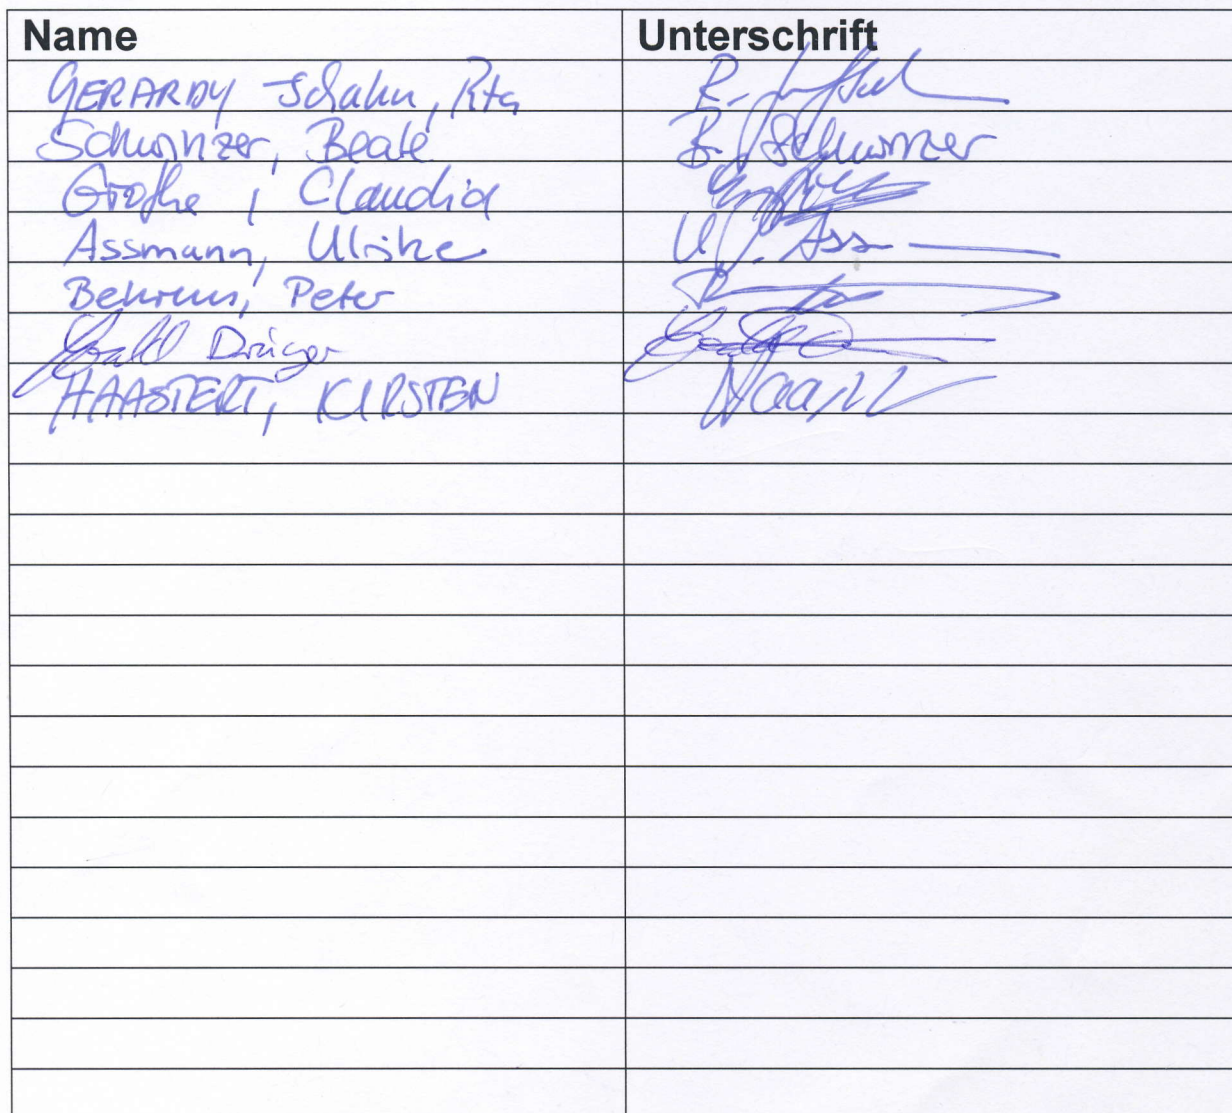 Name Unterschrift
GERARDY Schahn, Rita
Schwinzer, Beate B. Schwinzer
Grothe, Claudia
Assmann, Ulrike U. Ass
Behrens, Peter
Gerald Dräger
HAASTERT, KIRSTEN